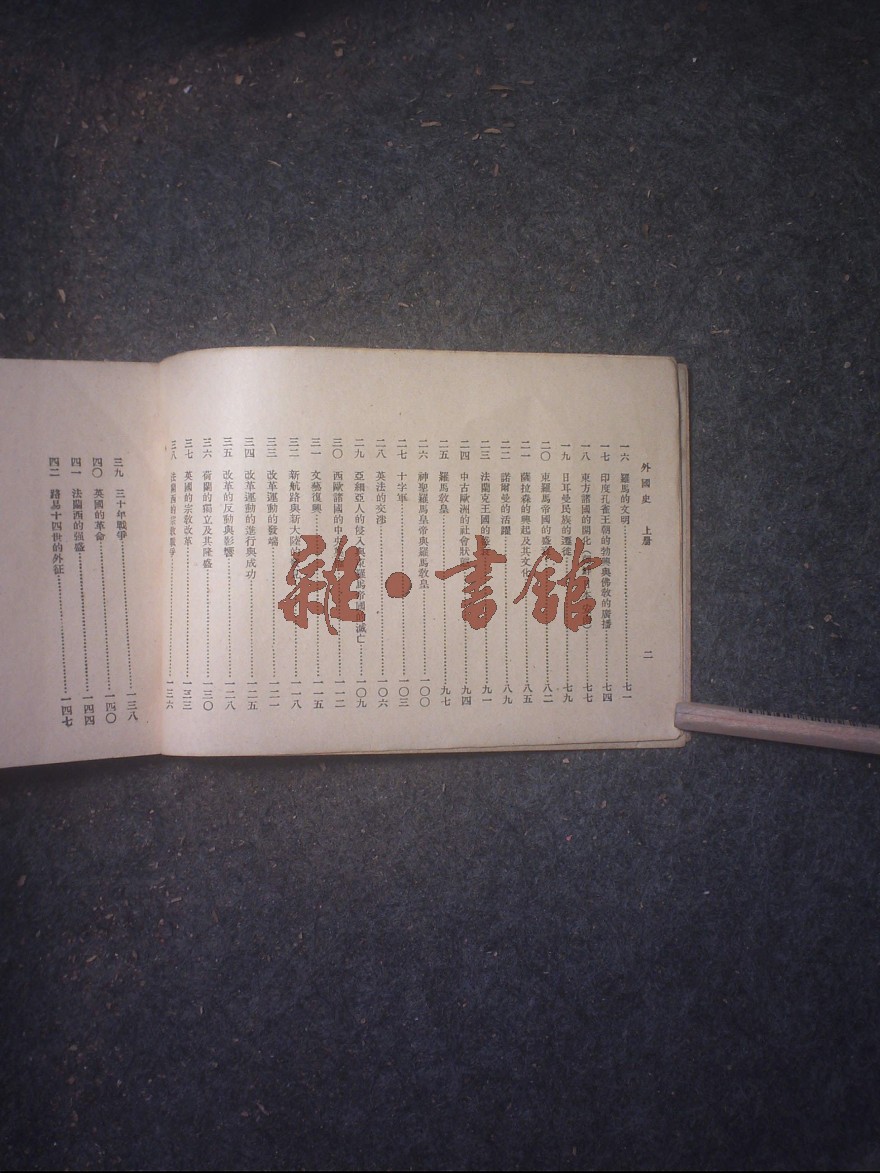 外國史 上册
二
一六 羅馬的文明……七一
一七 印度孔雀王朝的勃興與佛教的廣播……七四
一八 東方諸國的開化……七七
一九 日耳曼民族的遷徙……七九
二〇 東羅馬帝國的盛……八二
二一 薩拉森的興起及其文化……八五
二二 諾爾曼的活躍……八九
二三 法蘭克王國的……九一
二四 中古歐洲的社會狀……九四
二五 羅馬教皇……九七
二六 神聖羅馬皇帝與羅馬教皇……一〇〇
二七 十字軍……一〇三
二八 英法的交涉……一〇六
二九 亞細亞人的侵入與東羅馬帝國的滅亡……一〇九
三〇 西歐諸國的中……一一二
三一 文藝復興……一一五
三二 新航路與新大陸……一一八
三三 改革運動的發端……一二一
三四 改革運動的進行與成功……一二五
三五 改革的反動與影響……一二八
三六 荷蘭的獨立及其隆盛……一三〇
三七 英國的宗教改革……一三三
三八 法蘭西的宗教戰爭……一三六
三九 三十年戰爭……一三八
四〇 英國的革命……一四〇
四一 法蘭西的强盛……一四四
四二 路易十四世的外征……一四七
雜·書館